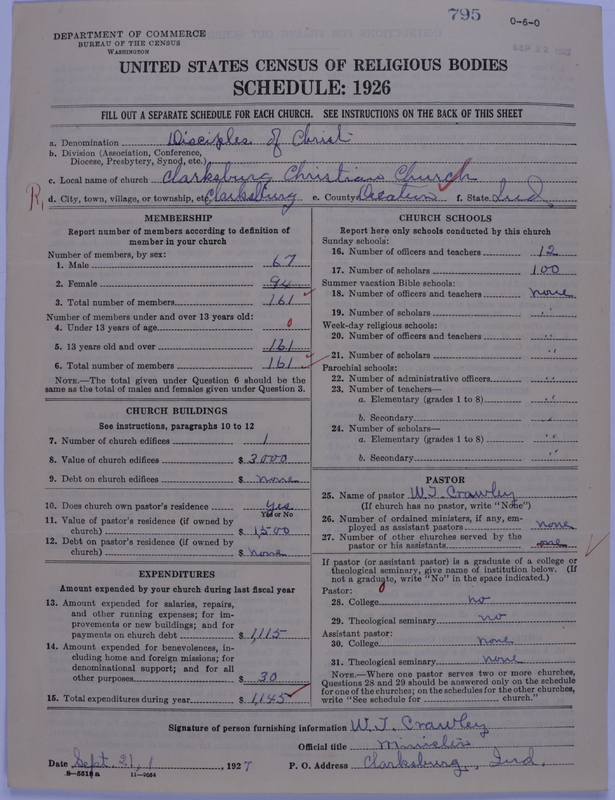 795
0-6-0
SEP 22 1927
DEPARTMENT OF COMMERCE
BUREAU OF THE CENSUS
WASHINGTON
UNITED STATES CENSUS OF RELIGIOUS BODIES
SCHEDULE: 1926
FILL OUT A SEPARATE SCHEDULE FOR EACH CHURCH. SEE INSTRUCTIONS ON THE BACK OF THIS SHEET
a. Denomination Disciples of Christ
b. Division (Association, Conference,
Diocese, Presbytery, Synod, etc.)
c. Local name of church Clarksburg Christian Church
R
d. City, town, village, or township, etc. Clarksburg e. County Decatur f. State Ind
MEMBERSHIP
Report number of members according to definition of
member in your church
Number of members, by sex:
1. Male 67
2. Female 94
3. Total number of members 161
Number of members under and over 13 years old:
4. Under 13 years of age 0
5. 13 years old and over 161
6. Total number of members 161
NOTE.—The total given under Question 6 should be the
same as the total of males and females given under Question 3.
CHURCH BUILDINGS
See instructions, paragraphs 10 to 12
7. Number of church edifices 1
8. Value of church edifices $ 3000
9. Debt on church edifices $ none
10. Does church own pastor's residence yes
Yes or No
11. Value of pastor's residence (if owned by
church) $ 1500
12. Debt on pastor's residence (if owned by
church) $ none
EXPENDITURES
Amount expended by your church during last fiscal year
13. Amount expended for salaries, repairs,
and other running expenses; for im-
provements or new buildings; and for
payments on church debt $ 1,115
14. Amount expended for benevolences, in-
cluding home and foreign missions; for
denominational support; and for all
other purposes $ 30
15. Total expenditures during year $ 1,145
CHURCH SCHOOLS
Report here only schools conducted by this church
Sunday schools:
16. Number of officers and teachers 12
17. Number of scholars 100
Summer vacation Bible schools:
18. Number of officers and teachers none
19. Number of scholars "
Week-day religious schools:
20. Number of officers and teachers "
21. Number of scholars "
Parochial schools:
22. Number of administrative officers "
23. Number of teachers—
a. Elementary (grades 1 to 8) "
b. Secondary "
24. Number of scholars—
a. Elementary (grades 1 to 8) "
b. Secondary "
PASTOR
25. Name of pastor W. T. Crawley
(If church has no pastor, write "None")
26. Number of ordained ministers, if any, em-
ployed as assistant pastors none
27. Number of other churches served by the
pastor or his assistants one
If pastor (or assistant pastor) is a graduate of a college or
theological seminary, give name of institution below. (If
not a graduate, write "No" in the space indicated.)
Pastor: 0
28. College no
29. Theological seminary no
Assistant pastor:
30. College none
31. Theological seminary none
NOTE.—Where one pastor serves two or more churches,
Questions 28 and 29 should be answered only on the schedule
for one of the churches; on the schedules for the other churches,
write "See schedule for church."
Signature of person furnishing information W. T. Crawley
Official title Minister
Date Sept. 21, 1927 P. O. Address Clarksburg, Ind.
8-5518 a 11-9054